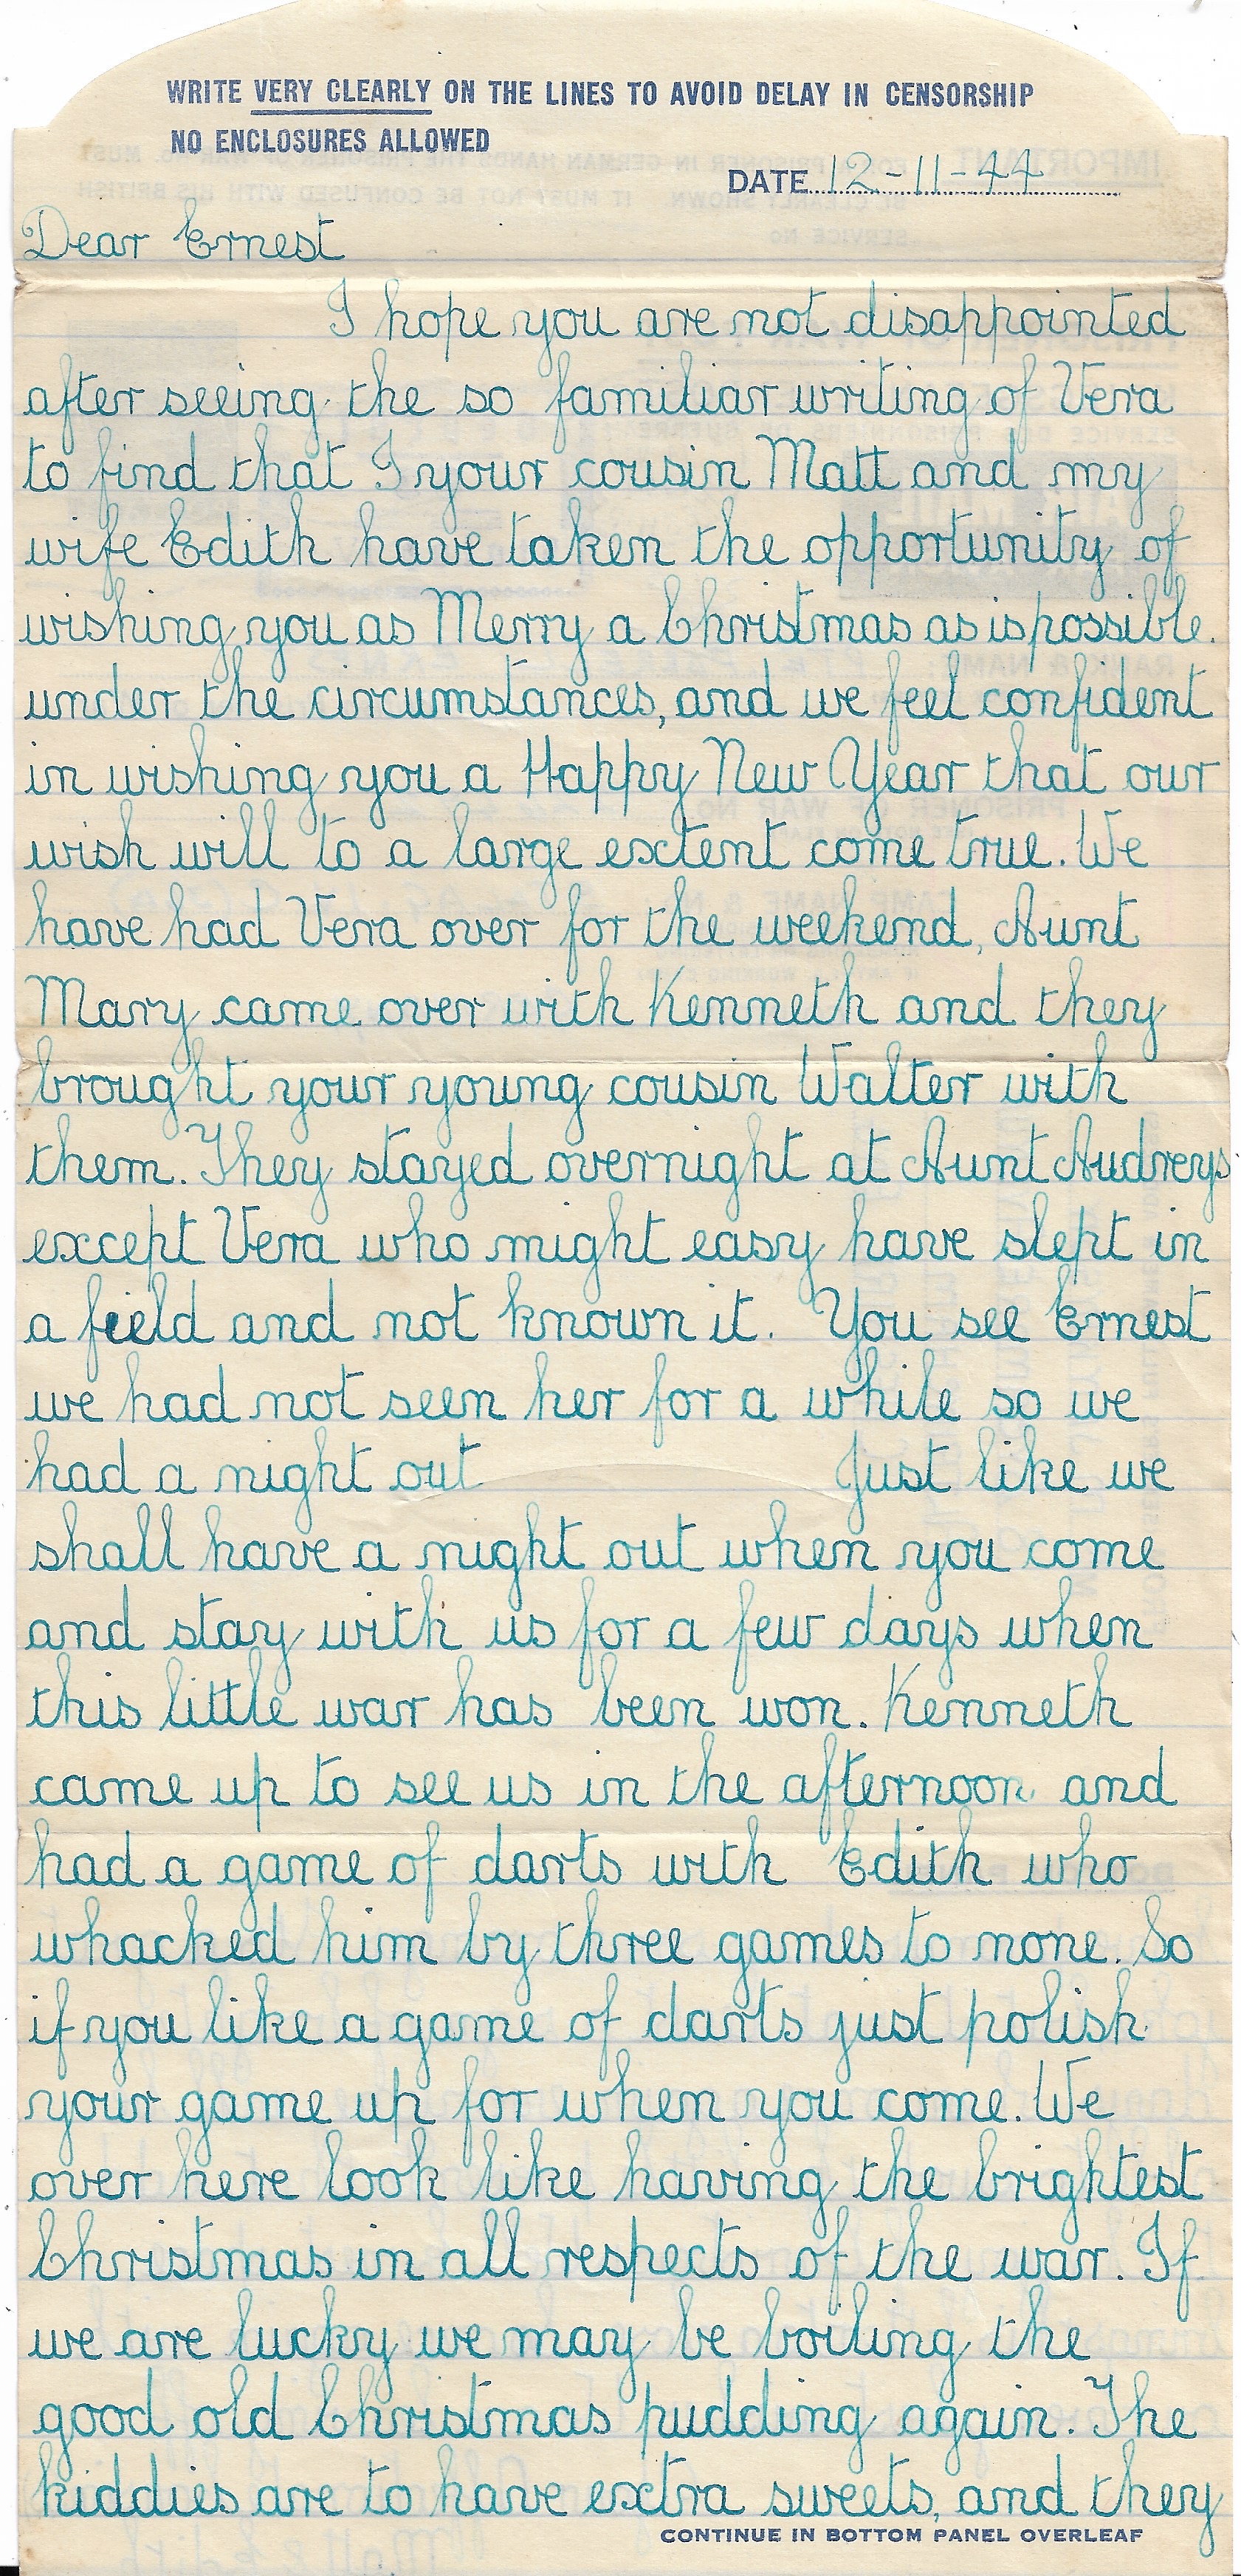 WRITE VERY CLEARLY ON THE LINES TO AVOID DELAY IN CENSORSHIP
NO ENCLOSURES ALLOWED
DATE 12-11-44
Dear Ernest
I hope you are not disappointed
after seeing the so familiar writing of Vera
to find that I your cousin Matt and my
wife Edith have taken the opportunity of
wishing you as Merry a Christmas as is possible.
under the circumstances, and we feel confident
in wishing you a Happy New Year that our
wish will to a large extent come true. We
have had Vera over for the weekend, Aunt
Mary came over with Kenneth and they
brought your young cousin Walter with
them. They stayed overnight at Aunt Audreys
except Vera who might easy have slept in
a field and not known it. You see Ernest
we had not seen her for a while so we
had a night out Just like we
shall have a night out when you come
and stay with us for a few days when
this little war has been won. Kenneth
came up to see us in the afternoon and
had a game of darts with Edith who
whacked him by three games to none. So
if you like a game of darts just polish
your game up for when you come. We
over here look like having the brightest
Christmas in all respects of the war. If
we are lucky we may be boiling the
good old Christmas pudding again. The
kiddies are to have extra sweets, and they
CONTINUE IN BOTTOM PANEL OVERLEAF